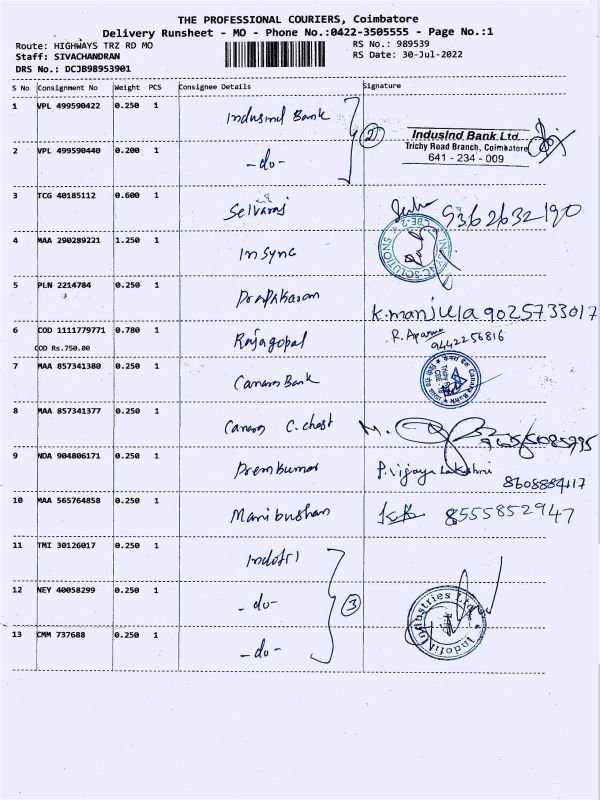 THE PROFESSIONAL COURIERS, Coimbatore
Delivery Runsheet - MO - Phone No.:0422-3505555 - Page No.:1
Route: HIGHWAYS TRZ RD MO RS No.: 989539
Staff: SIVACHANDRAN RS Date: 30-Jul-2022
DRS No.: DCJB98953901
S No Consignment No Weight PCS Consignee Details Signature
1 VPL 499590422 0.250 1 Indusind Bank
2
IndusInd Bank Ltd.
Trichy Road Branch, Coimbatore
641 - 234 - 009
2 VPL 499590440 0.200 1 -do-
3 TCG 40185112 0.600 1 Selvaraj 9362632190
4 MAA 290289221 1.250 1 Insync
SOLUTIONS
5 PLN 2214784 0.250 1 Prabhakaran K.manjula 9025733017
6 COD 1111779771 0.780 1 Rajagopal R. Aparna
9442256816
COD Rs.750.00
7 MAA 857341380 0.250 1 Canara Bank
Canara Bank
8 MAA 857341377 0.250 1 Canara C. chest M.
9 NDA 904806171 0.250 1 Premkumar P. Vijaya Lakshmi
8608884117
10 MAA 565764858 0.250 1 Manibushan 8555852947
11 TMI 30126017 0.250 1 Indofil
12 NEY 40058299 0.250 1 -do-
3
Indofil Industries Ltd.
13 CMM 737688 0.250 1 -do-